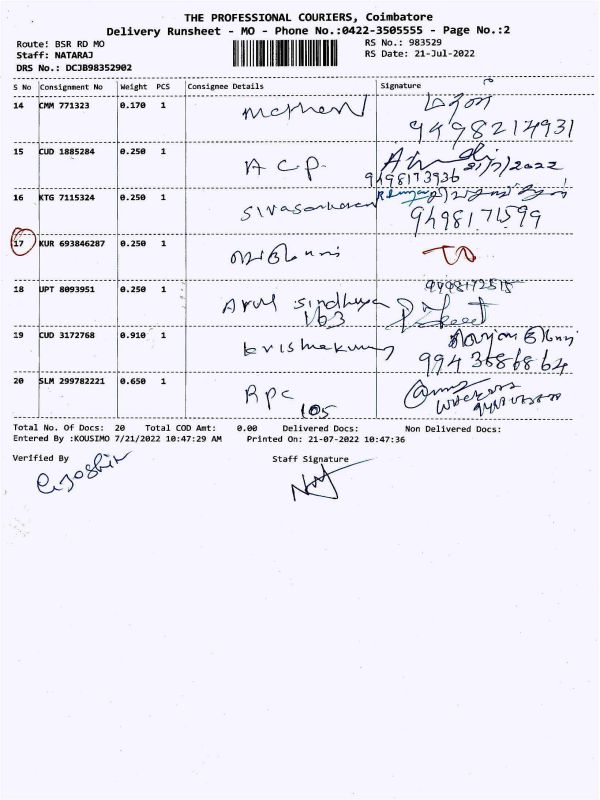 THE PROFESSIONAL COURIERS, Coimbatore
Delivery Runsheet - MO - Phone No.:0422-3505555 - Page No.:2
Route: BSR RD MO
Staff: NATARAJ
DRS No.: DCJB98352902
RS No.: 983529
RS Date: 21-Jul-2022
S No Consignment No Weight PCS Consignee Details Signature
14 CMM 771323 0.170 1
9498214931
15 CUD 1885284 0.250 1 A C P.
21/7/2022
9498173936
16 KTG 7115324 0.250 1 Sivasankaran
9498171599
17 KUR 693846287 0.250 1
18 UPT 8093951 0.250 1 Arul Sindhuya
163
19 CUD 3172768 0.910 1 Krishnakumar
9943686864
20 SLM 299782221 0.650 1 RPC
105
Total No. Of Docs: 20 Total COD Amt: 0.00 Delivered Docs: Non Delivered Docs:
Entered By :KOUSIMO 7/21/2022 10:47:29 AM Printed On: 21-07-2022 10:47:36
Verified By Staff Signature